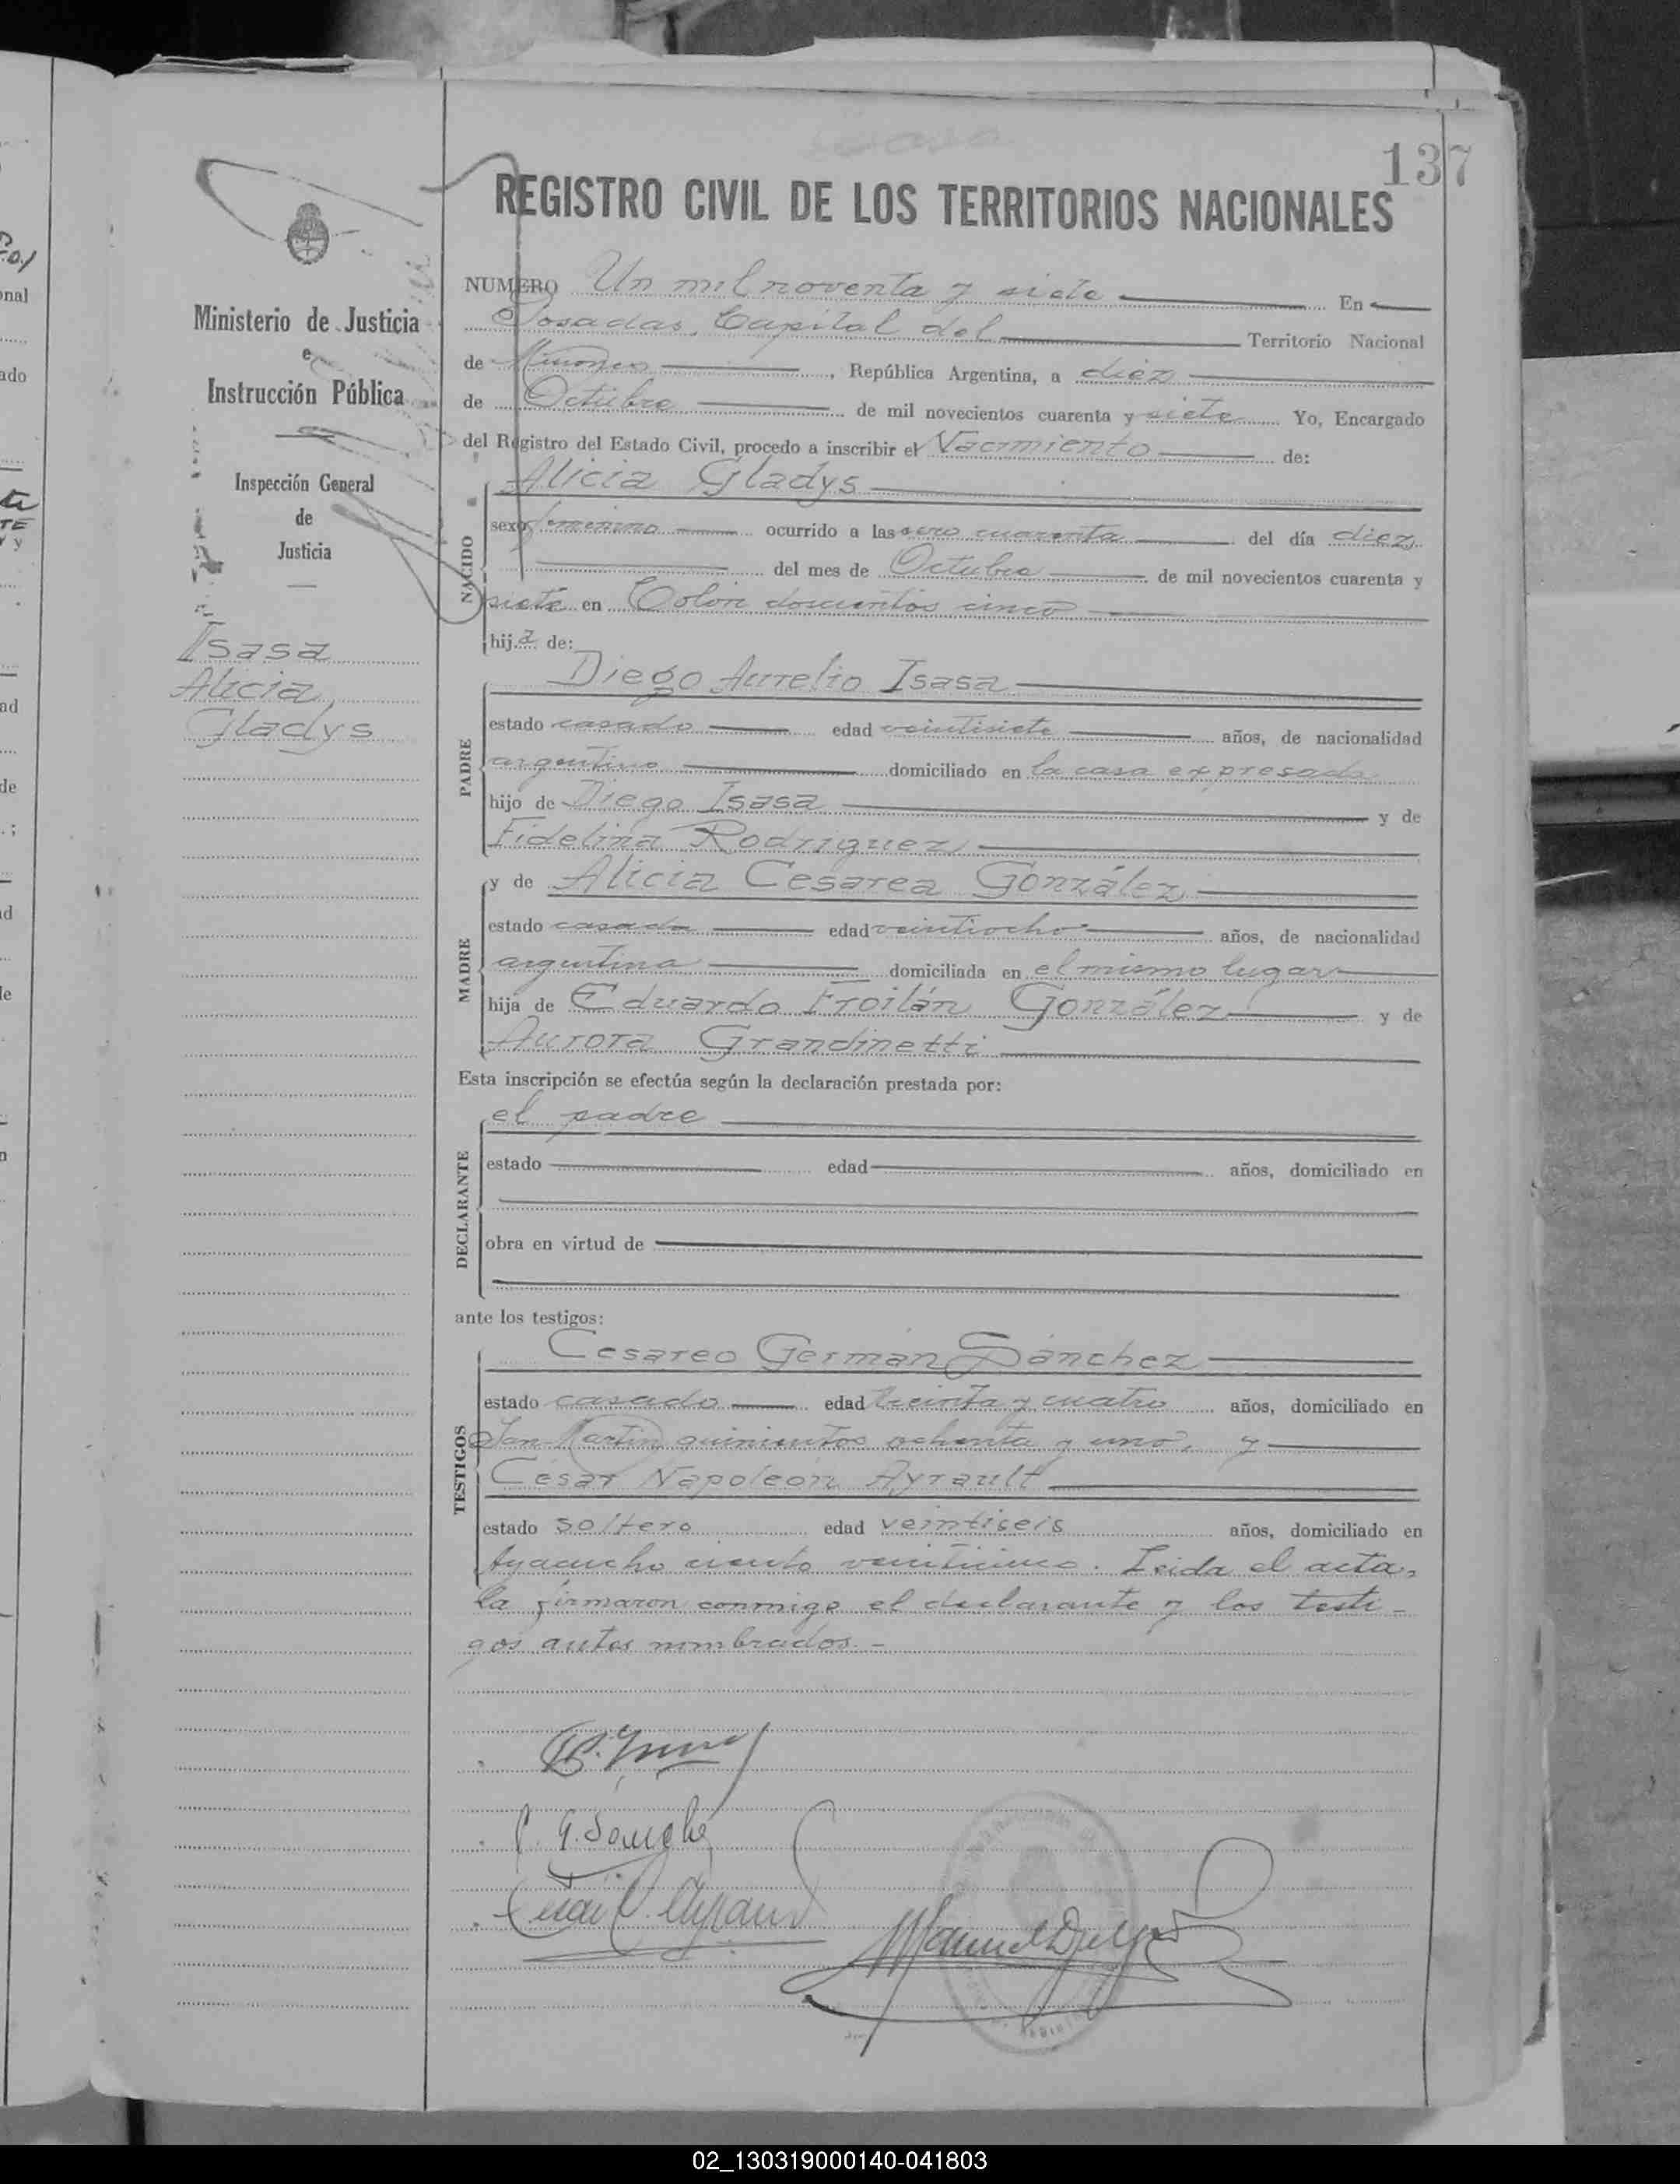 137
REGISTRO CIVIL DE LOS TERRITORIOS NACIONALES
Ministerio de Justicia
e
Instrucción Pública
Inspección General
de
Justicia
Isasa
Alicia
Gladys
NUMERO Un mil noventa y siete En
Posadas, Capital del Territorio Nacional
de Misiones , República Argentina, a diez
de Octubre de mil novecientos cuarenta y siete Yo, Encargado
del Registro del Estado Civil, procedo a inscribir el Nacimiento de:
NACIDO
Alicia Gladys
sexo femenino ocurrido a las cero cuarenta del día diez
del mes de Octubre de mil novecientos cuarenta y
siete en Colón doscientos cinco
hija de:
PADRE
Diego Aurelio Isasa
estado casado edad veintisiete años, de nacionalidad
argentino domiciliado en la casa expresada
hijo de Diego Isasa y de
Fidelina Rodriguez
MADRE
y de Alicia Cesarea González
estado casada edad veintiocho años, de nacionalidad
argentina domiciliada en el mismo lugar
hija de Eduardo Froilán González y de
Aurora Grandinetti
Esta inscripción se efectúa según la declaración prestada por:
DECLARANTE
el padre
estado edad años, domiciliado en
obra en virtud de
ante los testigos:
TESTIGOS
Cesareo Germán Sánchez
estado casado edad treinta y cuatro años, domiciliado en
San Martín quinientos ochenta y uno, y
César Napoleón Ayrault
estado soltero edad veintiseis años, domiciliado en
Ayacucho ciento veinticinco. Leida el acta,
la firmaron conmigo el declarante y los testi-
gos antes nombrados.-
02_130319000140-041803